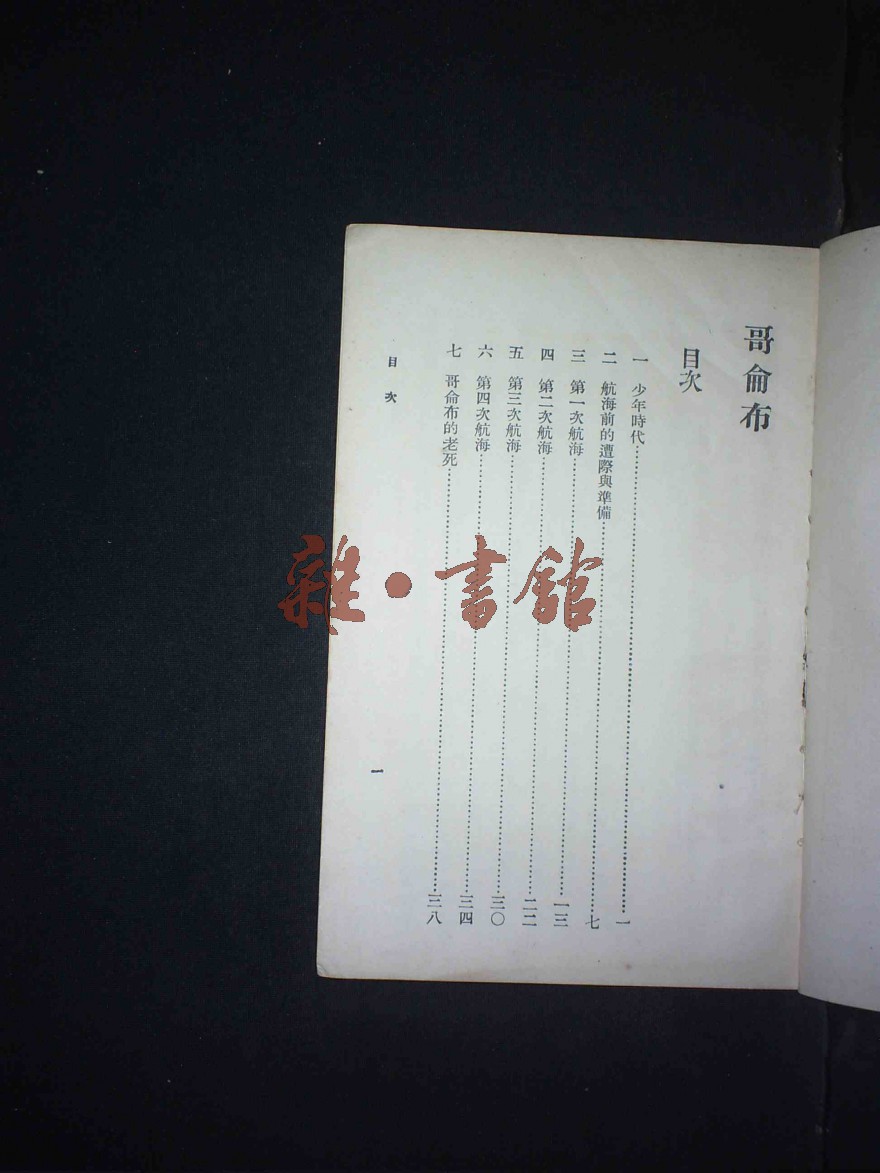 哥侖布
目次
一 少年時代……一
二 航海前的遭際與準備……七
三 第一次航海……一三
四 第二次航海……二二
五 第三次航海……三〇
六 第四次航海……三四
七 哥侖布的老死……三八
目次
一
雜·書館